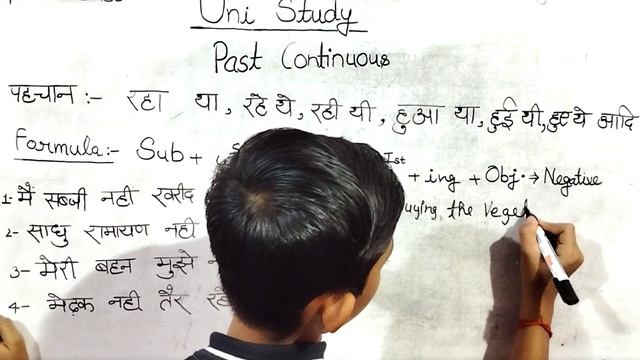 Uni Study
Past Continuous
पहचान :- रहा था, रहे थे, रही थी, हुआ था, हुई थी, हुए थे आदि
Formula:- Sub + Ist + ing + Obj. → Negative
1- मैं सब्जी नही खरीद uying the Veget
2- साधु रामायण नही
3- मेरी बहन मुझे
4- मेढ़क नही तैर रहे